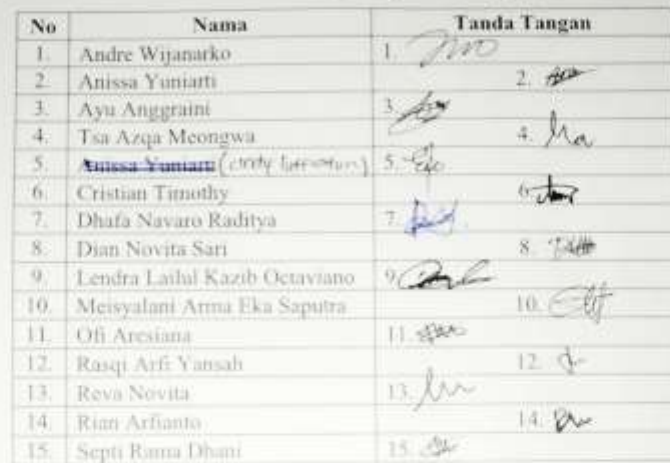 No Nama Tanda Tangan
1. Andre Wijanarko 1.
2. Anissa Yuniarti 2.
3. Ayu Anggraini 3.
4. Tsa Azqa Meongwa 4.
5. Anissa Yuniarti 5.
6. Cristian Timothy 6.
7. Dhafa Navaro Raditya 7.
8. Dian Novita Sari 8.
9. Lendra Lailul Kazib Octaviano 9.
10. Meisyalani Arma Eka Saputra 10.
11. Ofi Aresiana 11.
12. Rasqi Arfi Yansah 12.
13. Reva Novita 13.
14. Rian Arfianto 14.
15. Septi Rama Dhani 15.